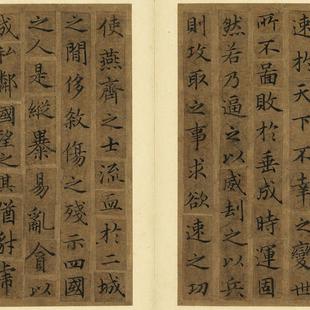 速於天下不幸之變世
所不啚敗於垂成時運固
然若乃逼之以威刧之以兵
則攻取之事求欲速之功
使燕齊之士流血於二城
之閒侈殺傷之殘示四國
之人是縱暴易亂貪以
成私鄰國望之其猶豺虎